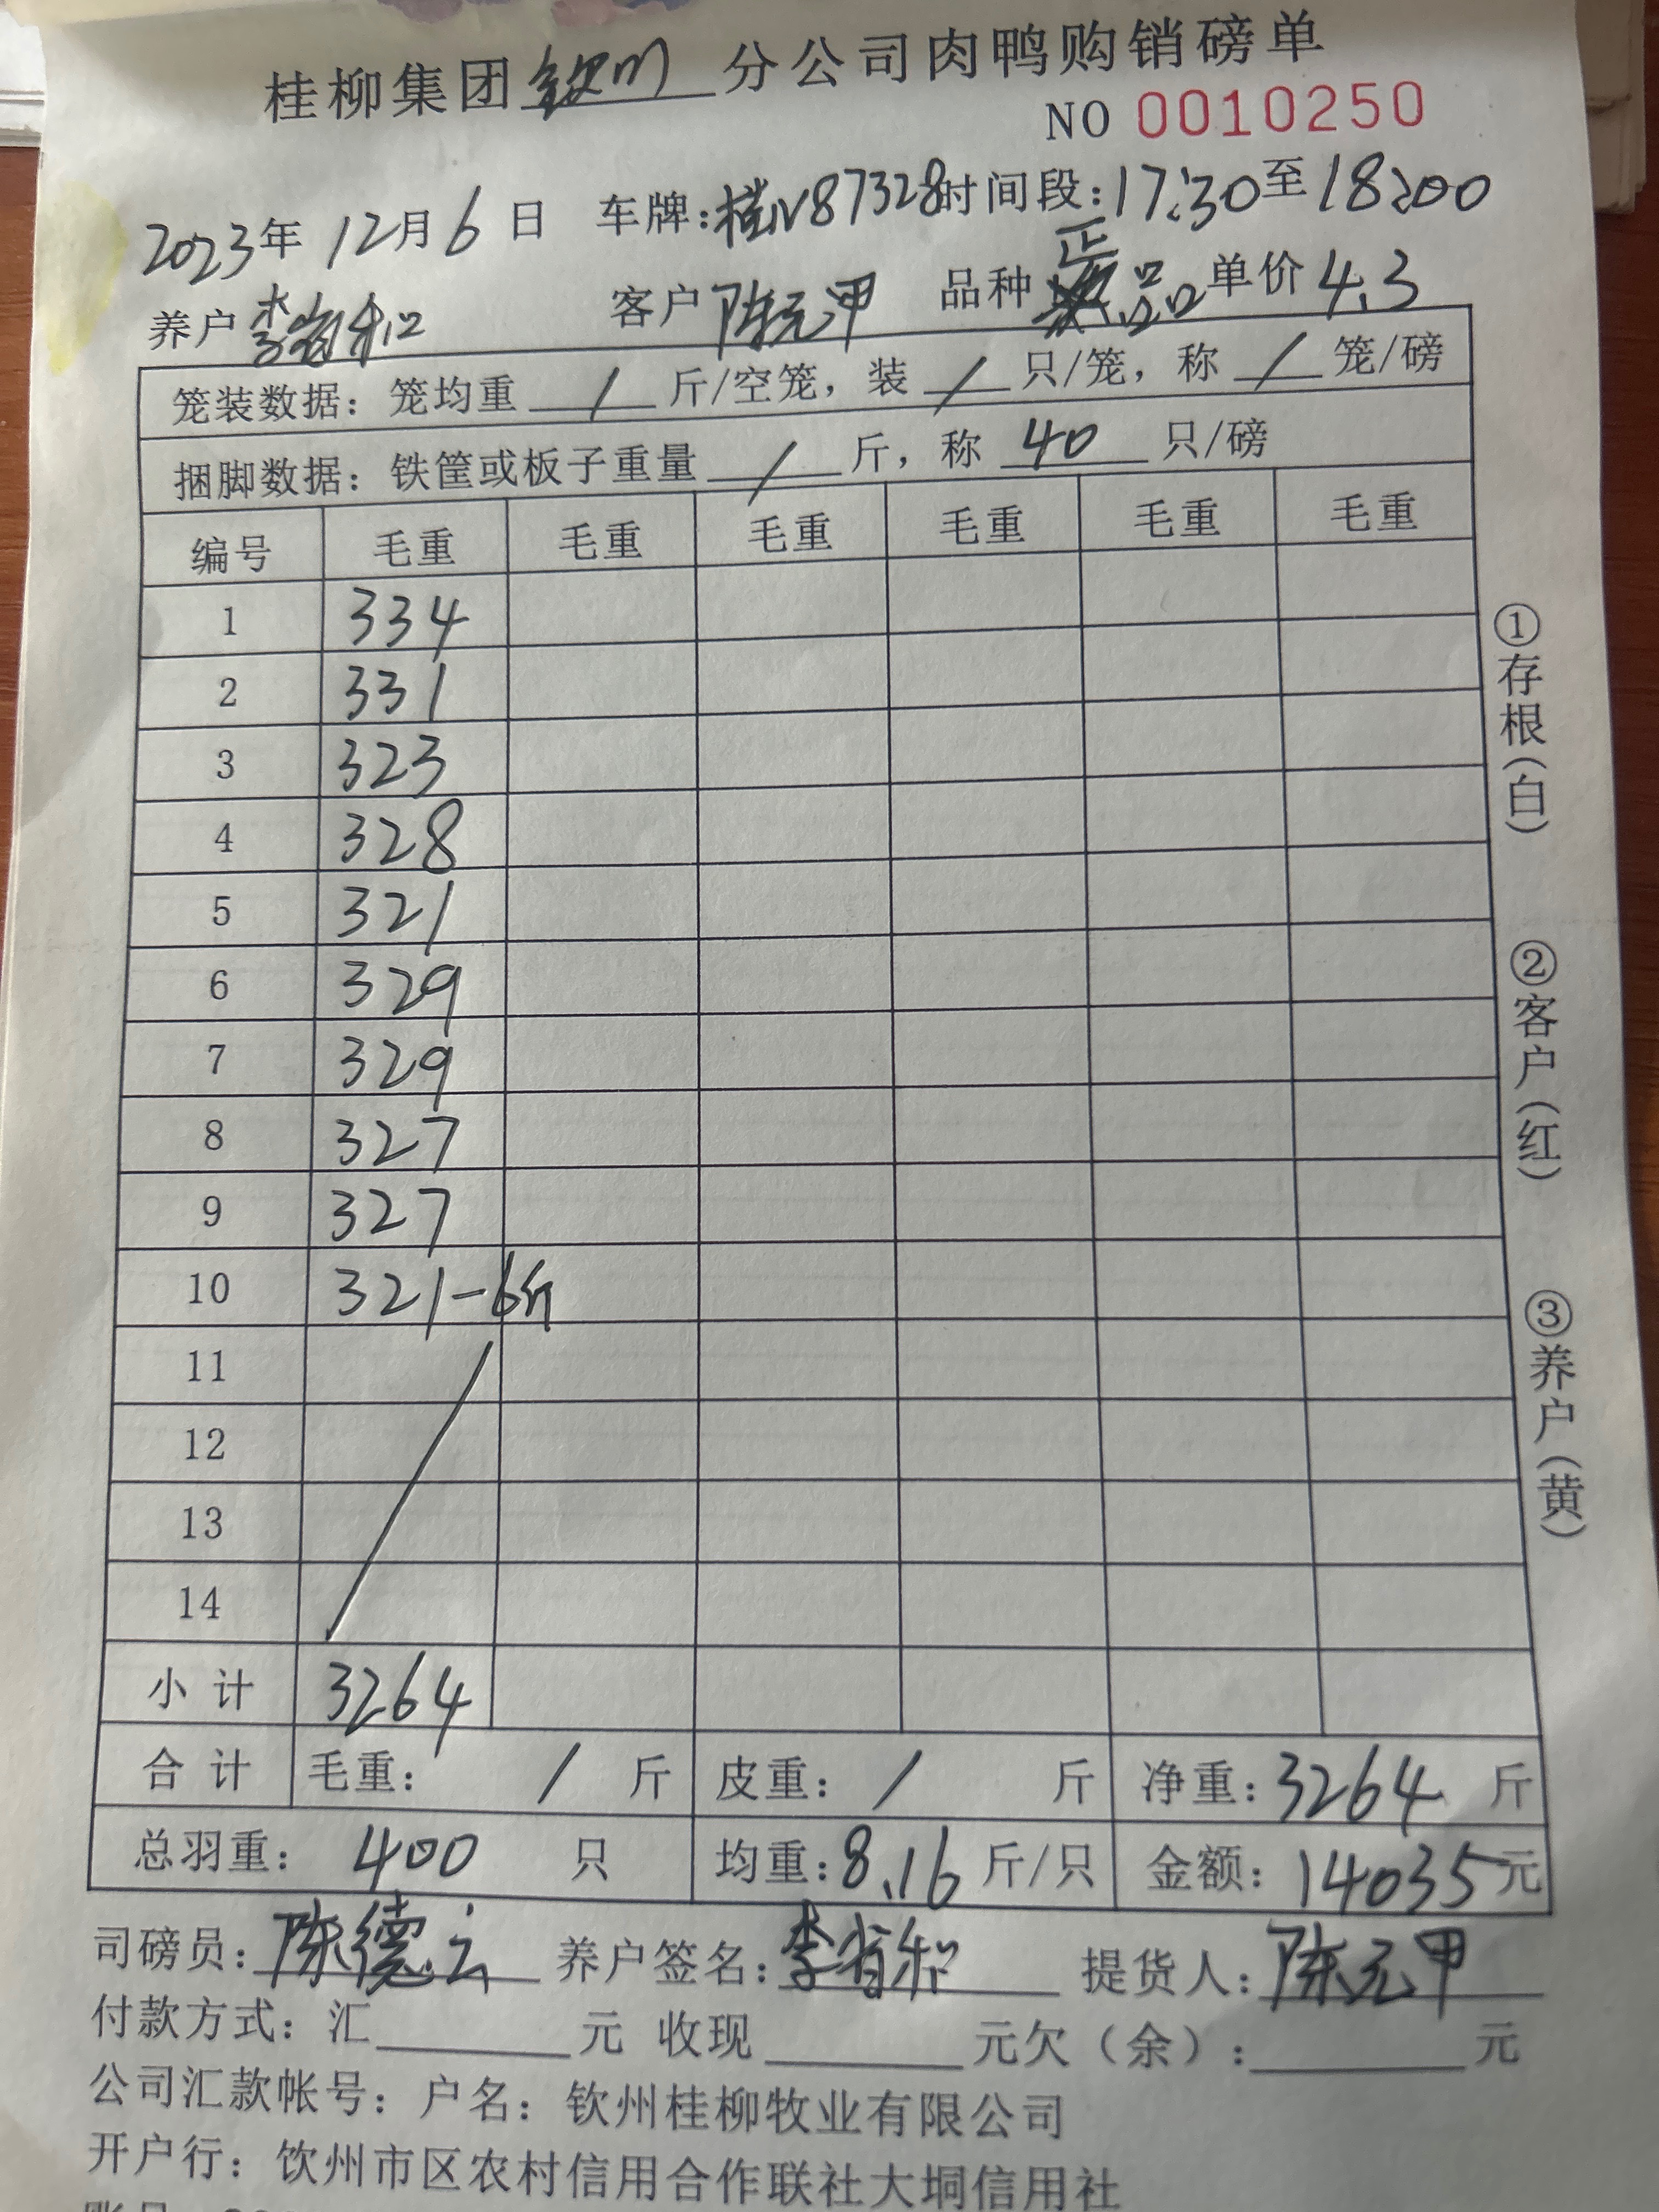 桂柳集团钦州分公司肉鸭购销磅单
NO 0010250
2023年12月6日 车牌:桂N87328时间段:17:30至18:00
养户李 客户陈元甲 品种正品单价4.3
笼装数据:笼均重 / 斤/空笼,装 / 只/笼,称 / 笼/磅
捆脚数据:铁筐或板子重量 / 斤,称 40 只/磅
编号 毛重 毛重 毛重 毛重 毛重 毛重
1 334
2 331
3 323
4 328
5 321
6 329
7 329
8 327
9 327
10 321-6斤
11
12
13
14
小计 3264
合计 毛重: / 斤 皮重: / 斤 净重:3264 斤
总羽重: 400 只 均重:8.16斤/只 金额:14035元
司磅员:陈德云 养户签名:李 提货人:陈元甲
付款方式:汇 元 收现 元欠(余): 元
公司汇款帐号:户名:钦州桂柳牧业有限公司
开户行:钦州市区农村信用合作联社大垌信用社
①存根(白) ②客户(红) ③养户(黄)